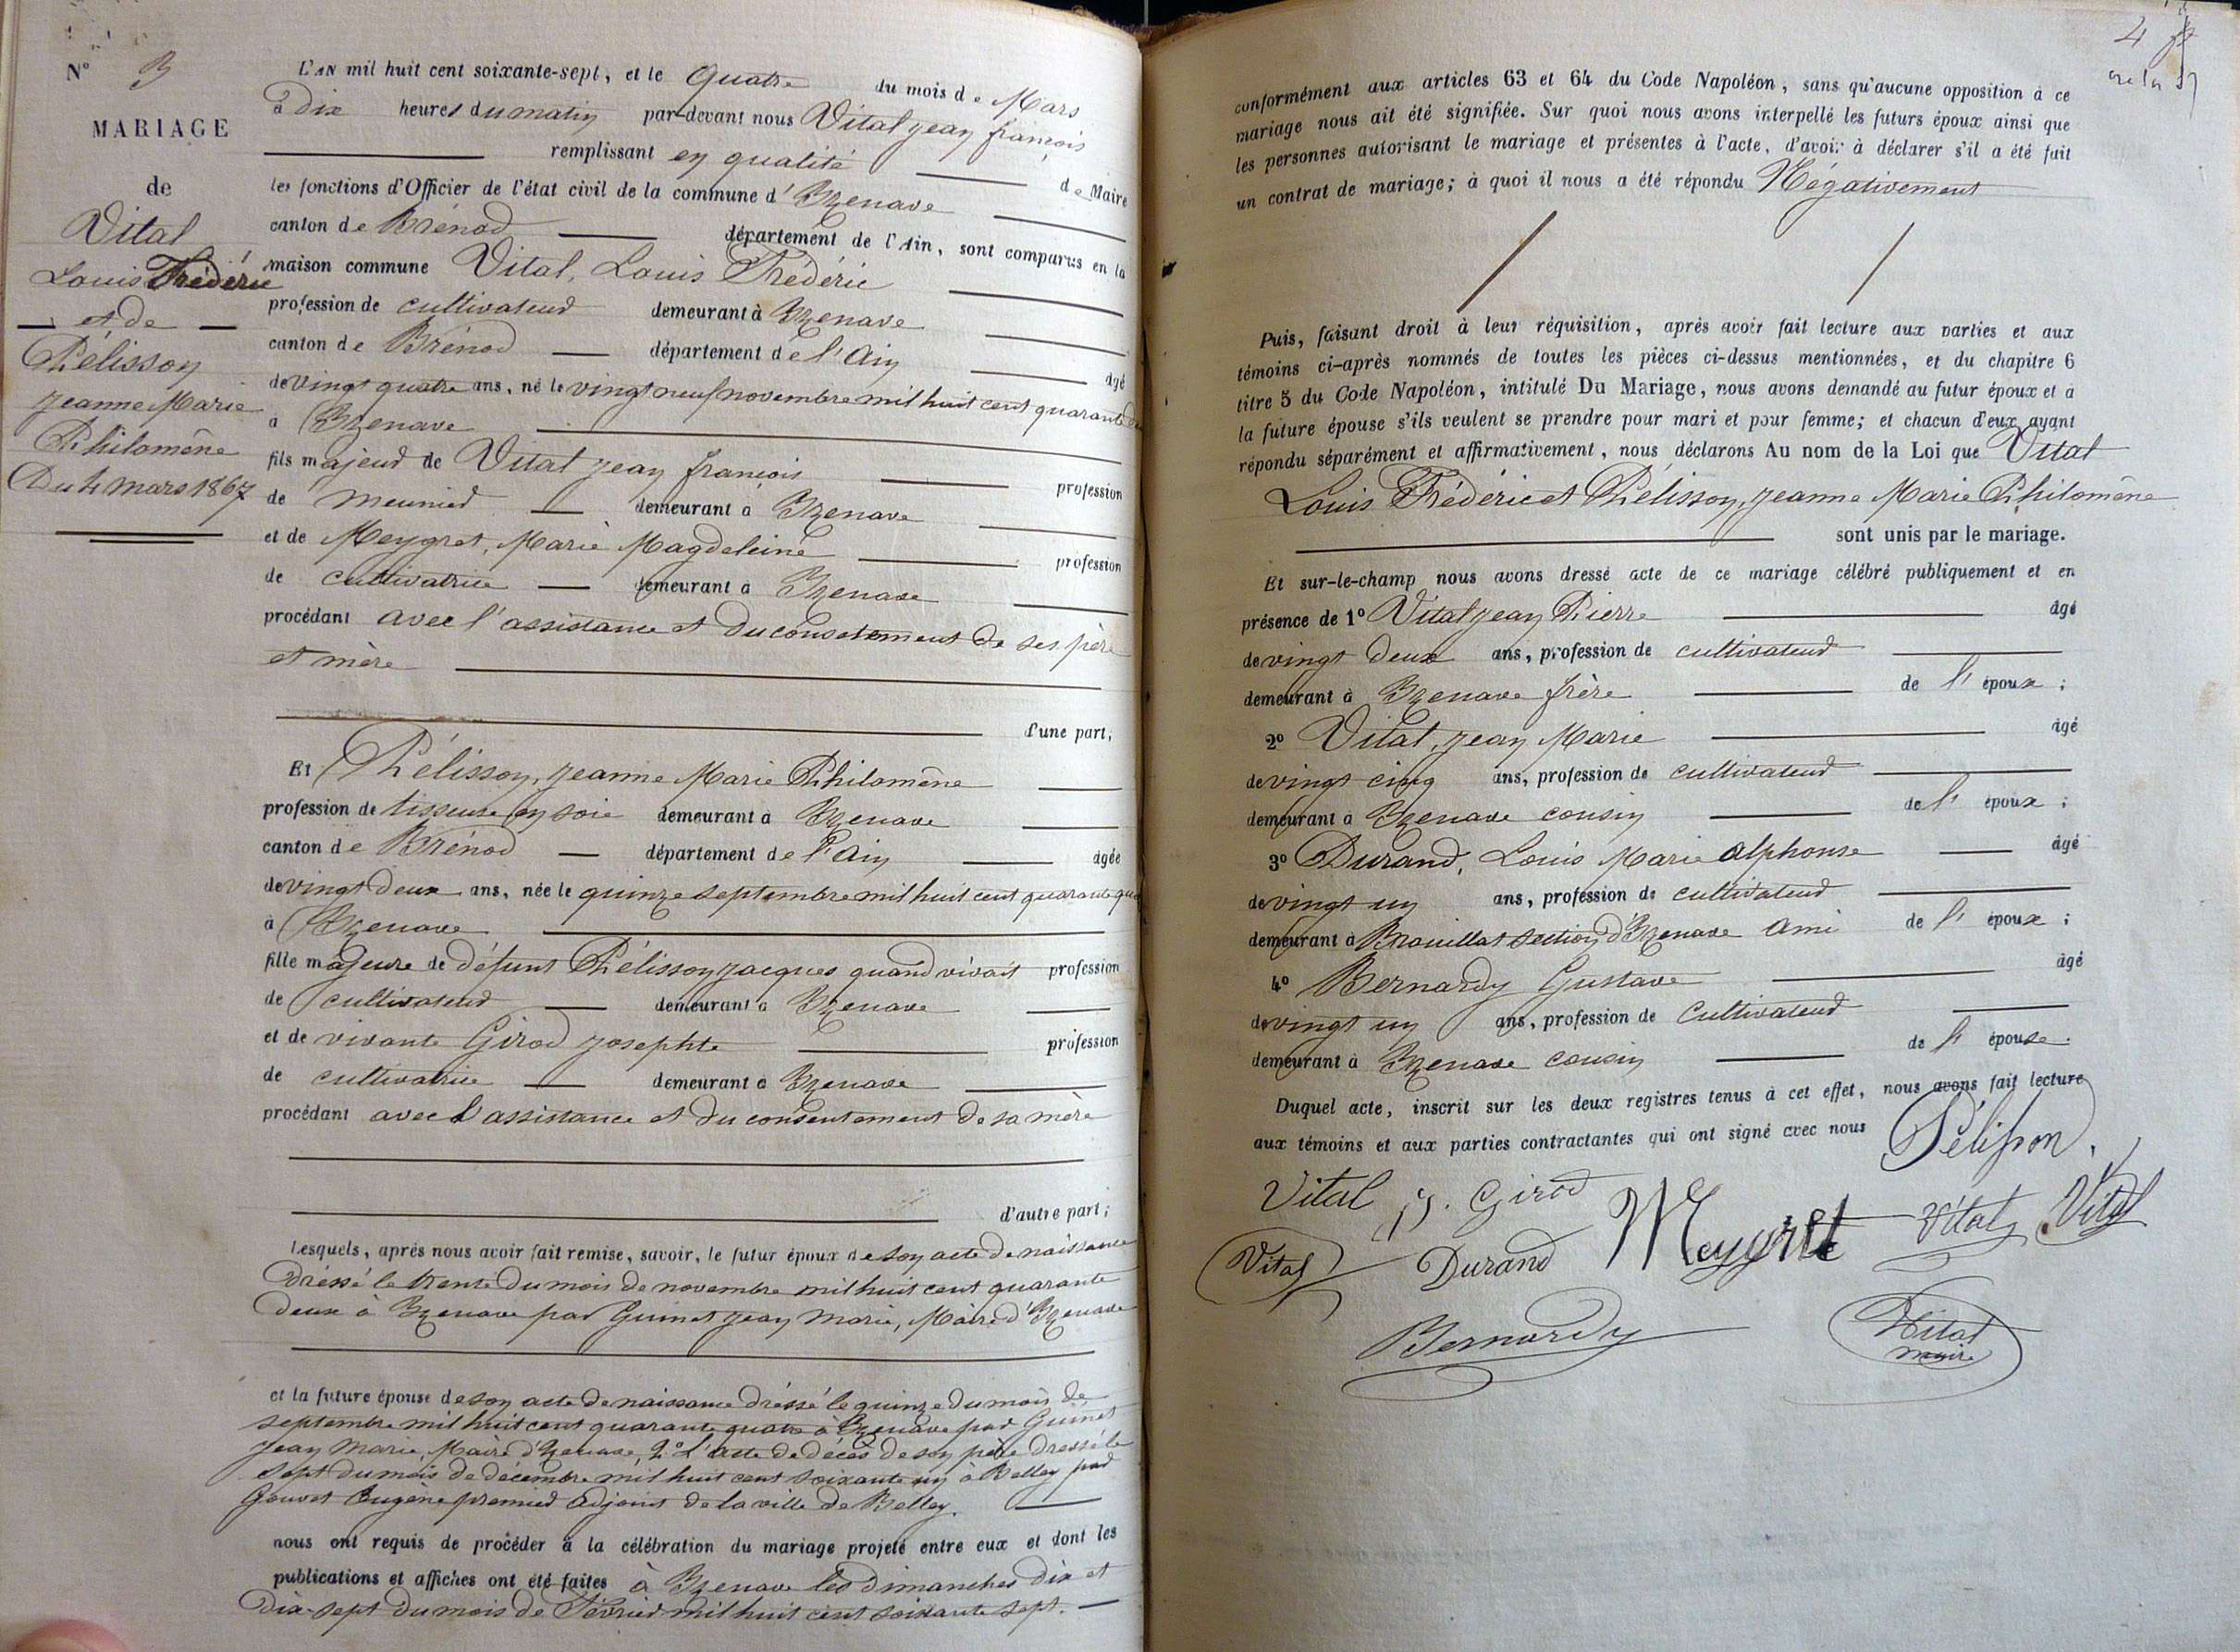 N° 3
MARIAGE
de
Vital
Louis Frédéric
et de
Pélisson
Jeanne Marie
Philomène
Du 4 mars 1867
L'AN mil huit cent soixante-sept, et le Quatre du mois de Mars
à dix heures du matin par-devant nous Vital Jean françois
remplissant en qualité de Maire
les fonctions d'Officier de l'état civil de la commune d'Izenave
canton de Brénod département de l'Ain, sont comparus en la
maison commune Vital, Louis Frédéric
profession de cultivateur demeurant à Izenave
canton de Brénod département de l'Ain âgé
de vingt quatre ans, né le vingt neuf novembre mil huit cent quarante
à Izenave
fils majeur de Vital Jean françois profession
de meunier demeurant à Izenave
et de Meygret, Marie Magdeleine profession
de cultivatrice demeurant à Izenave
procédant avec l'assistance et du consetement de ses père
et mère
d'une part;
Et Pélisson, Jeanne Marie Philomène
profession de tisseuse en soie demeurant à Izenave
canton de Brénod département de l'Ain âgée
de vingt deux ans, née le quinze septembre mil huit cent quarante
à Izenave
fille majeure de défunt Pélisson Jacques quand vivait profession
de cultivateur demeurant à Izenave
et de vivante Girod Josephte profession
de cultivatrice demeurant à Izenave
procédant avec l'assistance et du consentement de sa mère
d'autre part;
Lesquels, après nous avoir fait remise, savoir, le futur époux de son acte de naissance
dréssé le trente du mois de novembre mil huit cent quarante
deux à Izenave par Guinet Jean Marie, Maire d'Izenave
et la future épouse de son acte de naissance dréssé le quinze du mois de
septembre mil huit cent quarante quatre à Izenave par Guinet
Jean Marie, Maire d'Izenave, 2° L'acte de décès de son père dressé le
sept du mois de décembre mil huit cent soixante un à Belley par
Gouvet Eugène premier adjoint de la ville de Belley.
nous ont requis de procéder à la célébration du mariage projeté entre eux et dont les
publications et affiches ont été faites à Izenave les dimanches dix et
dix-sept du mois de Février mil huit cent soixante sept.
4
conformément aux articles 63 et 64 du Code Napoléon, sans qu'aucune opposition à ce
mariage nous ait été signifiée. Sur quoi nous avons interpellé les futurs époux ainsi que
les personnes autorisant le mariage et présentes à l'acte, d'avoir à déclarer s'il a été fait
un contrat de mariage; à quoi il nous a été répondu Négativement
Puis, faisant droit à leur réquisition, après avoir fait lecture aux parties et aux
témoins ci-après nommés de toutes les pièces ci-dessus mentionnées, et du chapitre 6
titre 5 du Code Napoléon, intitulé Du Mariage, nous avons demandé au futur époux et à
la future épouse s'ils veulent se prendre pour mari et pour femme; et chacun d'eux ayant
répondu séparément et affirmativement, nous déclarons Au nom de la Loi que Vital
Louis Frédéric et Pélisson, Jeanne Marie Philomène
sont unis par le mariage.
Et sur-le-champ nous avons dressé acte de ce mariage célébré publiquement et en
présence de 1° Vital Jean Pierre âgé
de vingt deux ans, profession de cultivateur
demeurant à Izenave frère de l'époux;
2° Vital, Jean Marie âgé
de vingt cinq ans, profession de cultivateur
demeurant à Izenave cousin de l'époux;
3° Durand, Louis Marie Alphonse âgé
de vingt un ans, profession de cultivateur
demeurant à Brouillat section d'Izenave Ami de l'époux;
4° Bernardy Gustave âgé
de vingt un ans, profession de cultivateur
demeurant à Izenave cousin de l'épouse.
Duquel acte, inscrit sur les deux registres tenus à cet effet, nous avons fait lecture
aux témoins et aux parties contractantes qui ont signé avec nous Pélisson.
Vital J. Girod Meygret Vital Vital
Vital Durand
Bernardy Vital
maire